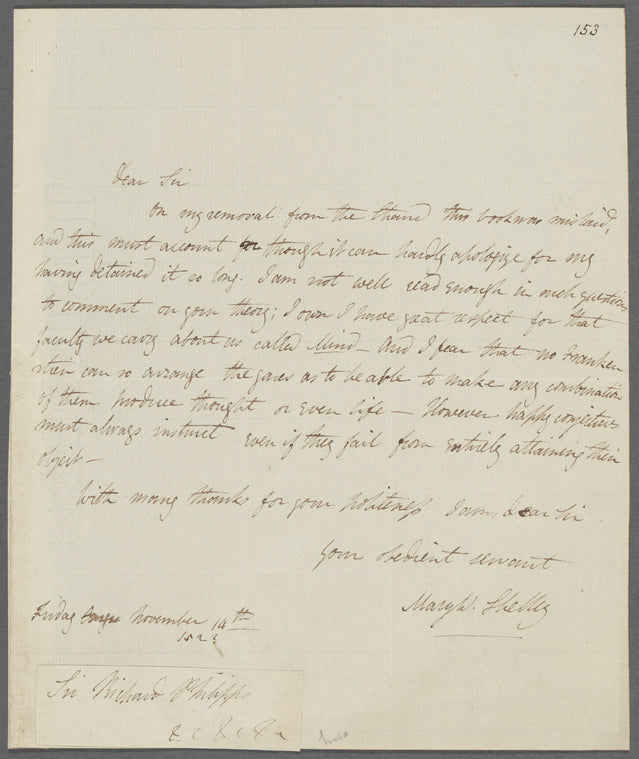 153
Dear Sir
On my removal from the Strand this book was mislaid,
and this must account for though it can hardly apologize for my
having detained it so long. I am not well read enough in such questions
to comment on your theory; I own I have great respect for that
faculty we carry about us called Mind – And I fear that no Franken
stein can so arrange the gases as to be able to make any combination
of them produce thought or even life – However happy conjectures
must always instruct even if they fail from entirely attaining their
object –
With many thanks for your politeness I am, dear Sir
Your obedient servant
Mary W. Shelley
Friday November 14th
Sir Richard Philipps
&c &c &c